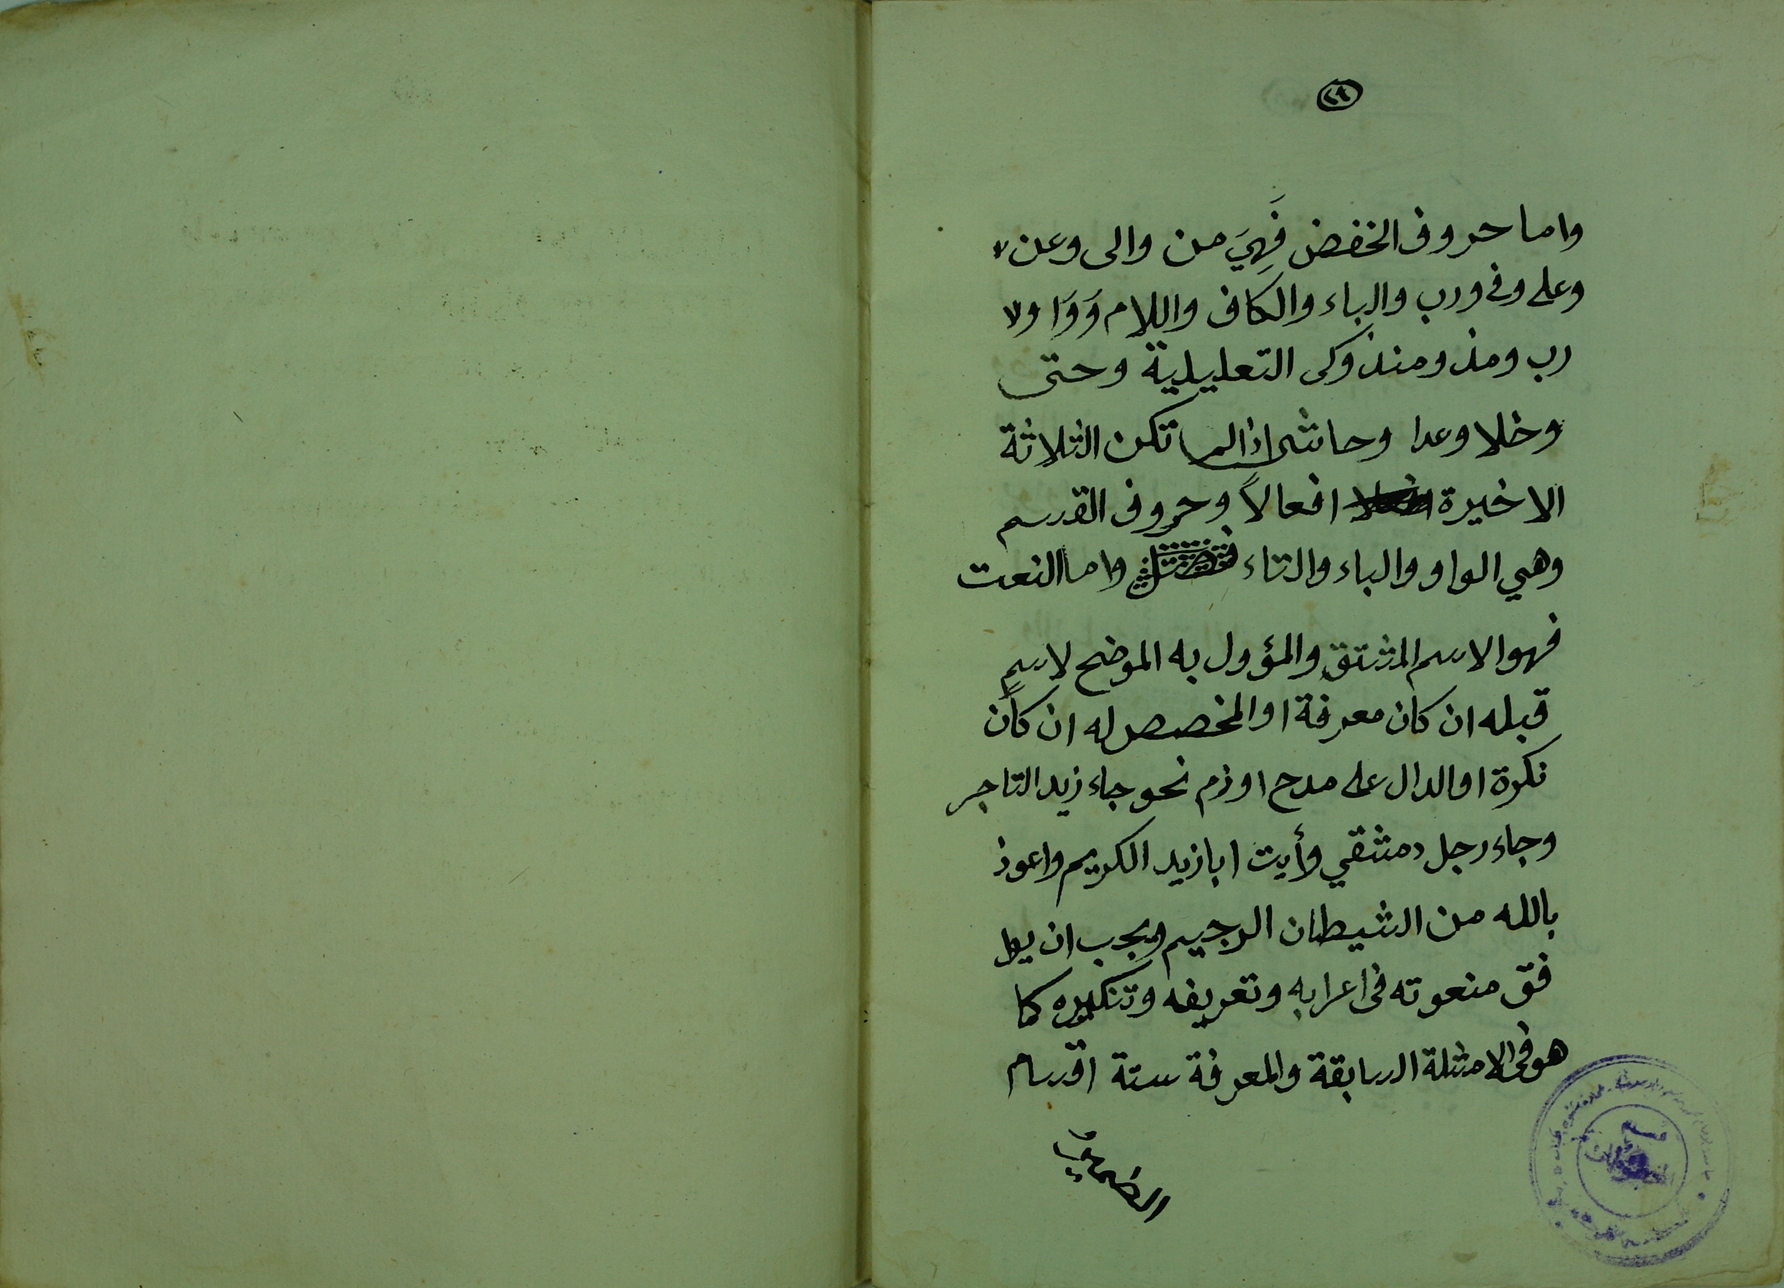 ٢٩
واما حروف الخفض فَهِيَ من والى وعن
وعلى وفي ورب والباء والكاف واللام وَوَا و
رب ومذ ومنذ وكى التعليلية وحتى
وخلا وعدا وحاشى اذا لم تكن الثلاثة
الاخيرة افعالاً وحروف القسم
وهي الواو والباء والتاء واما النعت
فهو الاسم المشتق والمؤول به الموضح لاسمٍ
قبله ان كان معرفة او المخصص له ان كان
نكرة او الدال على مدح او ذم نحو جاء زيد التاجر
وجاء رجل دمشقي ورأيت ابا زيد الكريم واعوذ
بالله من الشيطان الرجيم ويجب ان يوا
فق منعوته فى اعرابه وتعريفه وتنكيره كما
هو فى الامثلة السابقة والمعرفة ستة اقسام
الضمائر
قسم
المخطوطات